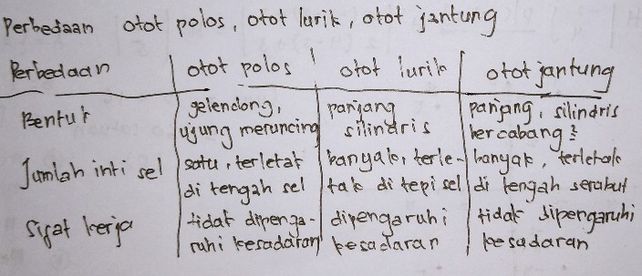 Perbedaan otot polos, otot lurik, otot jantung
Perbedaan otot polos otot lurik otot jantung
Bentuk gelendong, panjang panjang, silindris
ujung meruncing silindris bercabang²
Jumlah inti sel satu, terletak banyak, terle- banyak, terletak
di tengah sel tak di tepi sel di tengah serabut
Sifat kerja tidak dipenga- dipengaruhi tidak dipengaruhi
ruhi kesadaran kesadaran kesadaran